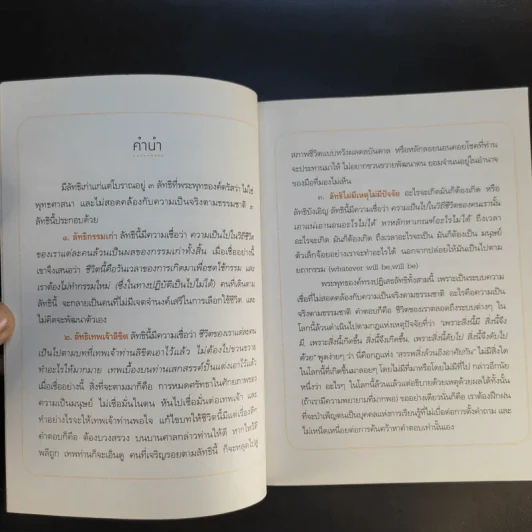 คำนำ
มีลัทธิเก่าแก่แต่โบราณอยู่ ๓ ลัทธิที่พระพุทธองค์ตรัสว่า ไม่ใช่
พุทธศาสนา และไม่สอดคล้องกับความเป็นจริงตามธรรมชาติ ๓
ลัทธินี้ประกอบด้วย
๑. ลัทธิกรรมเก่า ลัทธินี้มีความเชื่อว่า ความเป็นไปในวิถีชีวิต
ของเราแต่ละคนล้วนเป็นผลของกรรมเก่าทั้งสิ้น เมื่อเชื่ออย่างนี้
เขาจึงเสนอว่า ชีวิตนี้คือวันเวลาของการเกิดมาเพื่อชดใช้กรรม และ
เราต้องไม่ทำกรรมใหม่ (ซึ่งในทางปฏิบัติเป็นไปไม่ได้) คนที่เดินตาม
ลัทธินี้ จะกลายเป็นคนที่ไม่มีเจตจำนงค์เสรีในการเลือกใช้ชีวิต และ
ไม่คิดจะพัฒนาตัวเอง
๒. ลัทธิเทพเจ้าลิขิต ลัทธินี้มีความเชื่อว่า ชีวิตของเราแต่ละคน
เป็นไปตามบทที่เทพเจ้าท่านลิขิตเอาไว้แล้ว ไม่ต้องไปขวนขวาย
ทำอะไรให้มากมาย เทพเบื้องบนท่านเสกสรรค์ปั้นแต่งเอาไว้แล้ว
เมื่อเชื่ออย่างนี้ สิ่งที่จะตามมาก็คือ การหมดศรัทธาในศักยภาพของ
ความเป็นมนุษย์ ไม่เชื่อมั่นในตน หันไปเชื่อมั่นต่อเทพเจ้า และ
ทำอย่างไรจะให้เทพเจ้าท่านพอใจ แก้ไขบทให้ชีวิตนี้มีแต่เรื่องดีๆ
คำตอบก็คือ ต้องบวงสรวง บนบานศาลกล่าวท่านให้ดี หากไหว้ดี
พลีถูก เทพท่านก็จะเอ็นดู คนที่เจริญรอยตามลัทธินี้ ก็จะหลุดไปสู่
สภาพชีวิตแบบหวังผลดลบันดาล หรือหลักลอยนอนคอยโชคที่ท่าน
จะประทานมาให้ ไม่อยากขวนขวายพัฒนาตน ยอมจำนนอยู่ในอำนาจ
ของมือที่มองไม่เห็น
๓. ลัทธิไม่มีเหตุไม่มีปัจจัย อะไรจะเกิดมันก็ต้องเกิด หรือ
ลัทธิบังเอิญ ลัทธินี้มีความเชื่อว่า ความเป็นไปในวิถีชีวิตของคนเรานั้น
เอาแน่เอานอนอะไรไม่ได้ หาหลักหาเกณฑ์อะไรไม่ได้ ถึงเวลา
อะไรจะเกิด มันก็ต้องเกิด ถึงเวลาอะไรจะเป็น มันก็ต้องเป็น มนุษย์
ตัวเล็กจ้อยอย่างเราจะทำอะไรได้ นอกจากปล่อยให้มันเป็นไปตาม
ยถากรรม (whatever will be,will be)
พระพุทธองค์ทรงปฏิเสธลัทธิทั้งสามนี้ เพราะเป็นระบบความ
เชื่อที่ไม่สอดคล้องกับความเป็นจริงตามธรรมชาติ อะไรคือความเป็น
จริงตามธรรมชาติ คำตอบก็คือ ชีวิตของเราตลอดถึงระบบต่างๆ ใน
โลกนี้ล้วนดำเนินไปตามกฎแห่งเหตุปัจจัยที่ว่า "เพราะสิ่งนี้มี สิ่งนี้จึง
มี เพราะสิ่งนี้เกิดขึ้น สิ่งนี้จึงเกิดขึ้น เพราะสิ่งนี้ดับไป สิ่งนี้จึงดับไป
ด้วย" พูดง่ายๆ ว่า นี่คือกฎแห่ง "สรรพสิ่งล้วนอิงอาศัยกัน" ไม่มีสิ่งใด
ในโลกนี้ที่เกิดขึ้นมาลอยๆ โดยไม่มีที่มาหรือโดยไม่มีที่ไป กล่าวอีกนัย
หนึ่งว่า อะไรๆ ในโลกนี้ล้วนแล้วแต่อธิบายด้วยเหตุด้วยผลได้ทั้งนั้น
(ถ้าเรามีความพยายามที่มากพอ) ขออย่างเดียวนั่นก็คือ เราต้องฝึกฝน
ที่จะบำเพ็ญตนเป็นบุคคลแห่งการเรียนรู้ที่ไม่เบื่อต่อการตั้งคำถาม และ
ไม่เหน็ดเหนื่อยต่อการค้นคว้าหาคำตอบเท่านั้นเอง